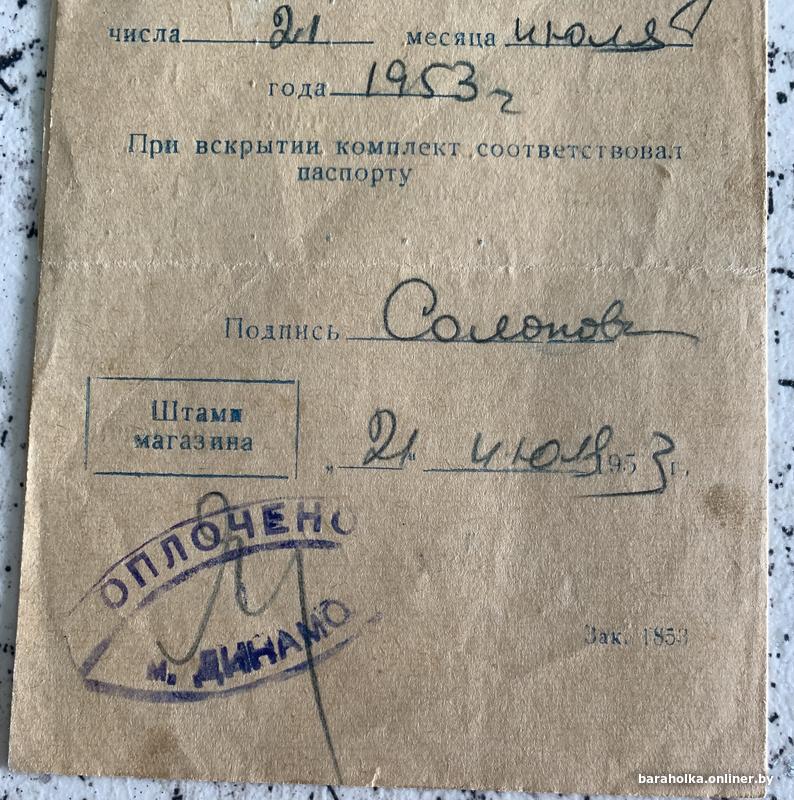 числа 21 месяца июля
года 1953 г
При вскрытии комплект соответствовал
паспорту
Подпись Солопова
Штамп
магазина
„21“ июля 1953 г.
ОПЛОЧЕНО
м. ДИНАМО
Зак. 1853
baraholka.onliner.by